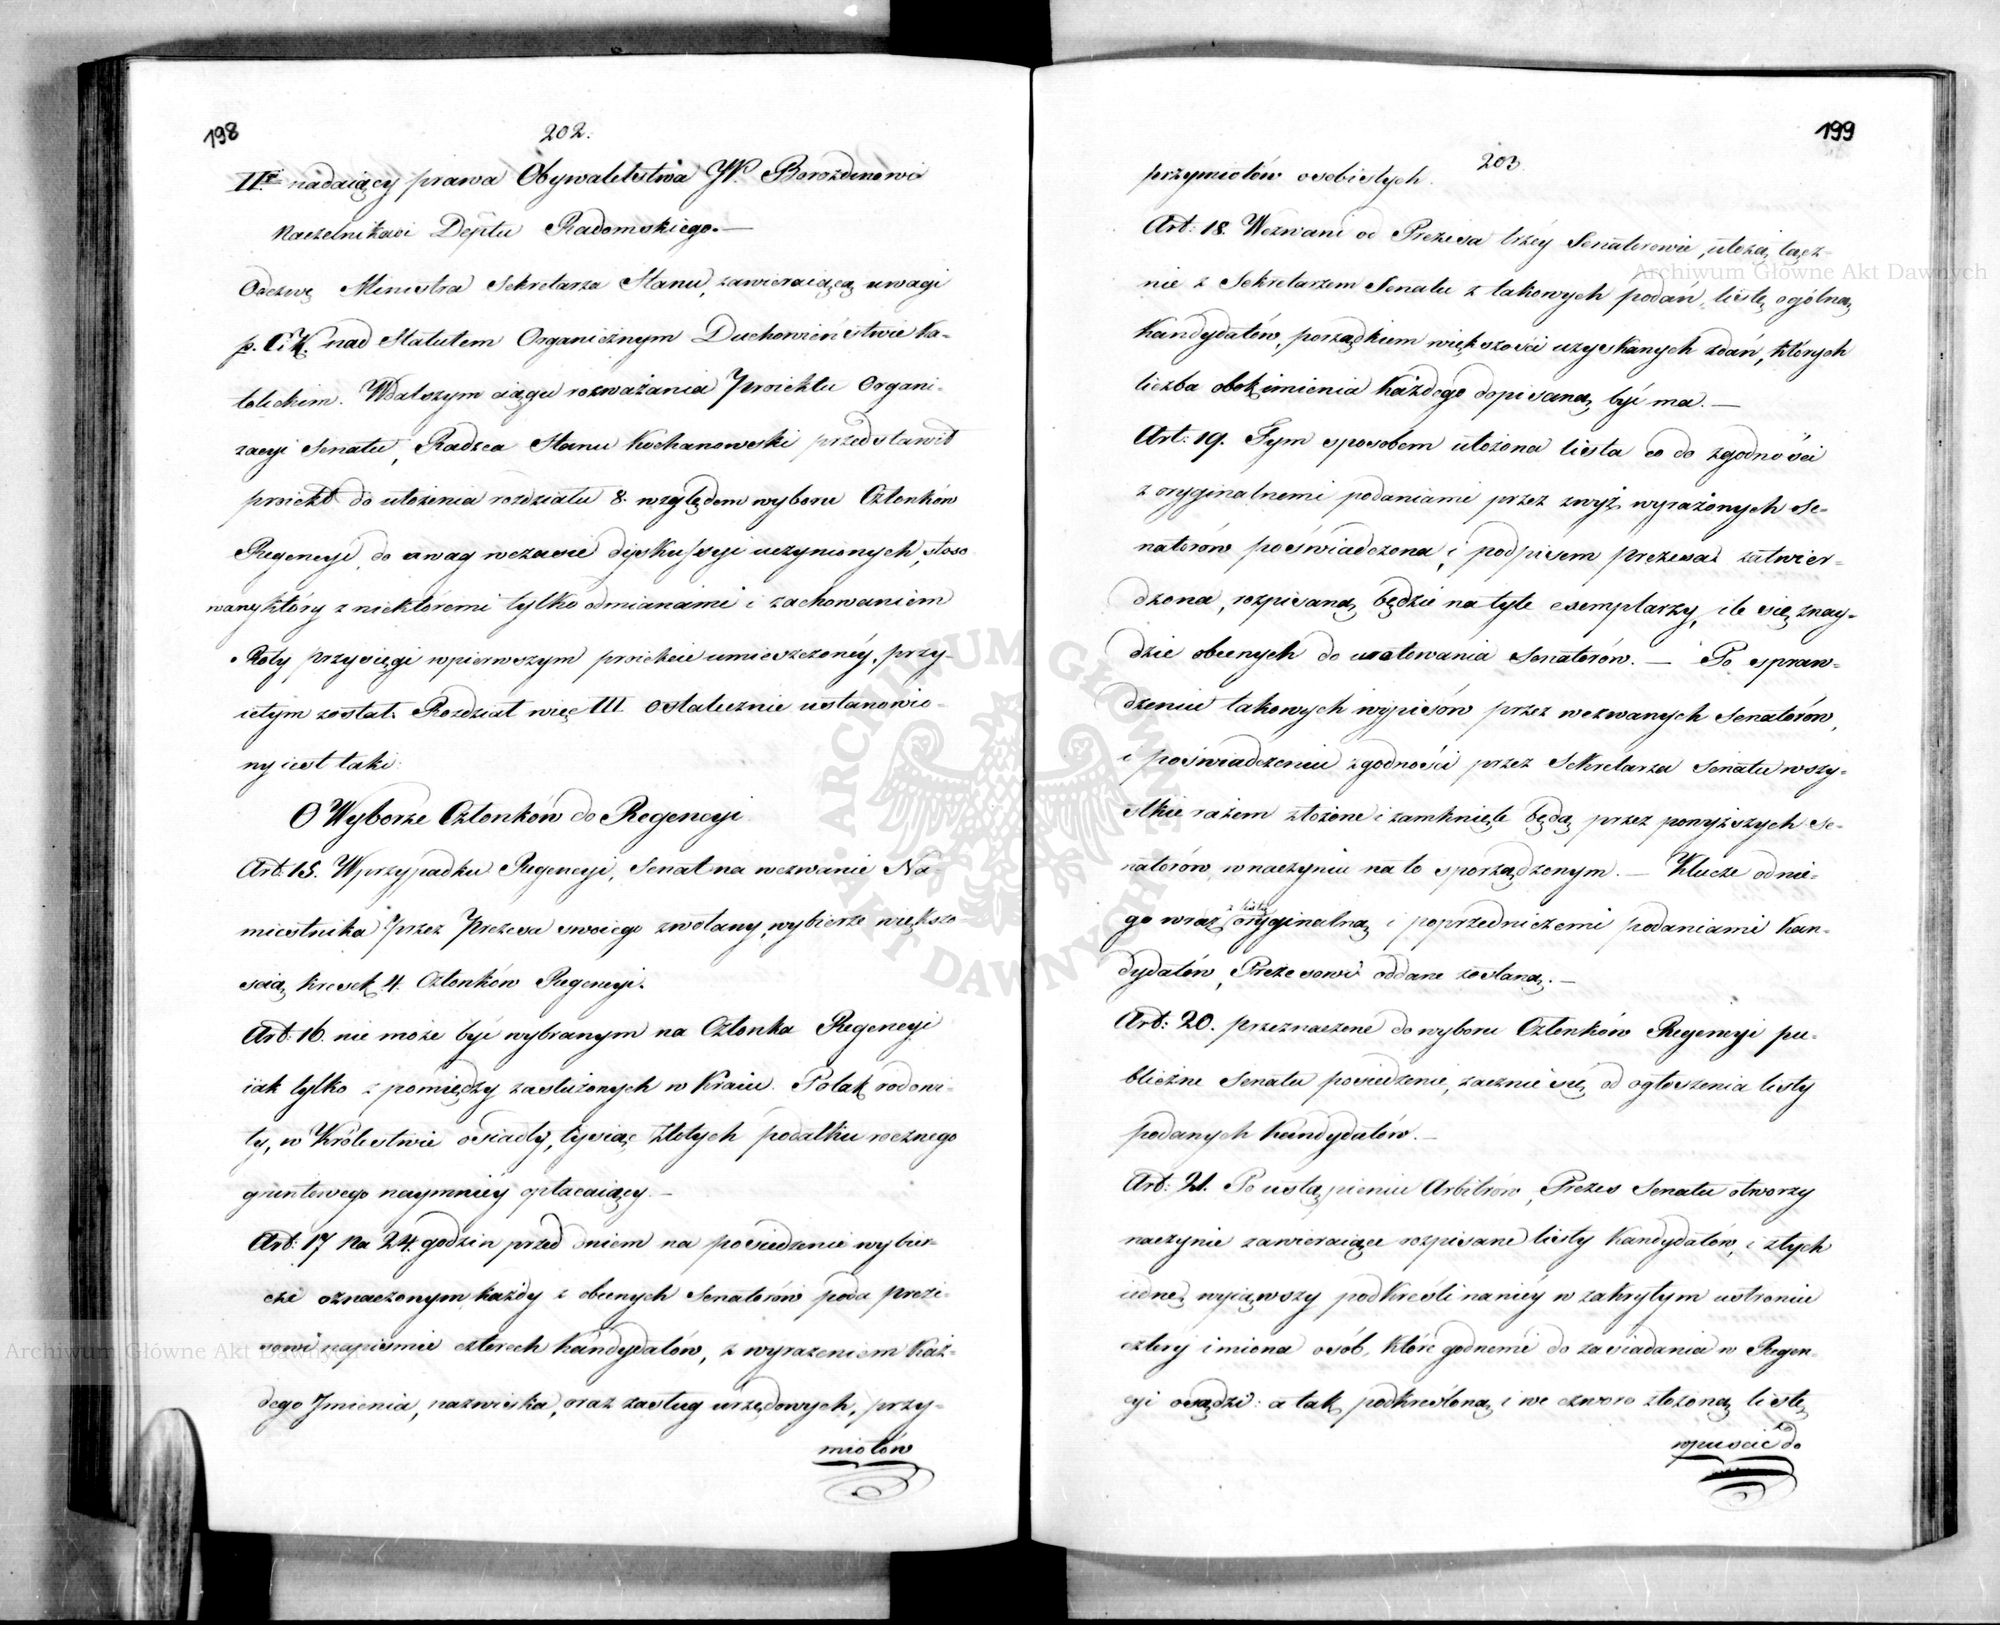 198
202.
II.gi nadaiący prawa Obywatelstwa JW. Borozdinowi
Naczelnikowi Deptu Radomskiego. —
Odezwę Ministra Sekretarza Stanu, zawieraiącą uwagi
nad Statutem Organicznym Duchowieństwie Ka-
tolickim. Wdalszym ciągu rozważania Proiektu Organi-
zacyi Senatu, Radzca Stanu Kochanowski przedstawił
proiekt do ułożenia rozdziału 8. względem wyboru Członków
Regencyi, do uwag wczasie dyskussyi uczynionych, stoso
wany który z niektóremi tylko odmianami i zachowaniem
Roty przysięgi wpierwszym proiekcie umieszczonéy, przy-
iętym został. Rozdział więc III. ostatecznie ustanowio-
ny iest taki:
O Wyborze Członków do Regencyi
Art: 15. Wprzypadku Regencyi, Senat na wezwanie Na-
miestnika przez Prezesa swoiego zwołany, wybierze większo
scią kresek 4. Członków Regencyi.
Art: 16. nie może być wybranym na Członka Regencyi
iak tylko z pomiędzy zasłużonych w Kraiu. Polak rodowi-
ty, w Królestwie osiadły, tysiąc złotych podatku rocznego
gruntowego naymniéy opłacaiący. —
Art: 17 Na 24. godzin przed dniem na posiedzenie wybier-
cze oznaczonym, każdy z obecnych Senatorów poda preze-
sowi napiśmie czterech kandydatów, z wyrażeniem Każ-
dego Imienia, nazwiska, oraz zasług urzędowych, przy-
miotów
199
203
przymiotów osobistych.
Art: 18. Wezwani od Prezesa trzéy Senatorowie, ułożą łącz-
nie z Sekretarzem Senatu z takowych podań, listę ogólną
Kandydatów, porządkiem większości uzyskanych zdań, których
liczba obok imienia Każdego dopisaną być ma. —
Art: 19. Tym sposobem ułożona lista co do zgodności
z oryginalnemi podaniami przez zwyż wyrażonych Se-
natorów poświadczona, i podpisem prezesa zatwier-
dzona, rozpisaną będzie na tyle exemplarzy, ile się znay-
dzie obecnych do wotowania Senatorów. — Po spraw-
dzeniu takowych wypisów przez wezwanych Senatorów,
i poświadczeniu zgodności przez Sekretarza Senatu wszy-
stkie rażem złożone i zamknięte będą przez powyższych Se-
natorów, wnaczyniu na to sporządzonym. — Klucze od nie-
go wraz z listą oryginalną i poprzedniczemi podaniami Kan-
dydatów, Prezesowi oddane zostaną. —
Art: 20. przeznaczone do wyboru Członków Regencyi pu-
bliczne Senatu posiedzenie, zacznie się od ogłoszenia listy
podanych Kandydatów. —
Art: 21. Po ustąpieniu Arbitrów, Prezes Senatu otworzy
naczynie zawieraiące rozpisane listy Kandydatów, i ztych
iednę wyiąwszy podkreśli naniéy w zakrytym ustroniu
cztery imiona osób, które godnemi do zasiadania w Regen-
cyi osądzi: a tak podkreśloną i we czworo złożoną listę
wpuscic do
Archiwum Główne Akt Dawnych
Archiwum Główne Akt Dawnych
ARCHIWUM GŁÓWNE AKT DAWNYCH